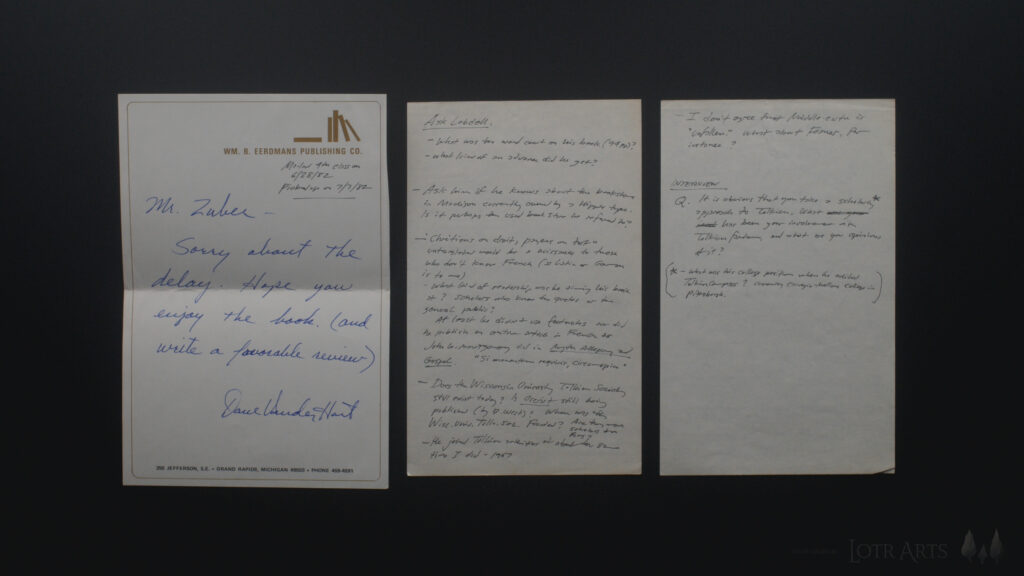 WM. B. EERDMANS PUBLISHING CO.
4th class on
6/28/82
on 7/7/82
Mr. Zuber –
Sorry about the
delay. Hope you
enjoy the book. (and
write a favorable review)
Dave Vander Hart
255 JEFFERSON, S.E. • GRAND RAPIDS, MICHIGAN 49503 • PHONE 459-4591
Ask Lobdell.
– What was the word count on his book
– What kind of an advance did he get?
– Ask him if he knows about the bookstore
in Madison currently owned by a Hippie type.
Is it perhaps the used book store he referred to?
– Chrétiens on droit, payens on tort
untranslated would be a nuisance to those
who don't know French (so Latin or German
is to me)
– What kind of readership was he aiming his book
at? scholars who know the quotes or the
general public?
At least he didn't use footnotes nor did
he publish an entire article in French as
John W. Montgomery did in Myth Allegory and
Gospel "Si monumentum requiris, circumspice"
– Does the Wisconsin University Tolkien Society
still exist today? Is Orcrist still being
published (by R. West)? When was the
Wisc. Univ. Tolk. Soc. Founded? Are they more
scholars than
– He joined Tolkien at about the same
time I did – 1967
– I don't agree that Middle earth is
"unfallen." What about Fëanor, for
instance?
INTERVIEW
Q. It is obvious that you take a scholarly*
approach to Tolkien. What
has been your involvement in
Tolkien fandom, and what are your opinions
of it?
(* – what was his college position when he edited
Tolkien Compass? currently college in
Pittsburgh.)
LOTR ARTS